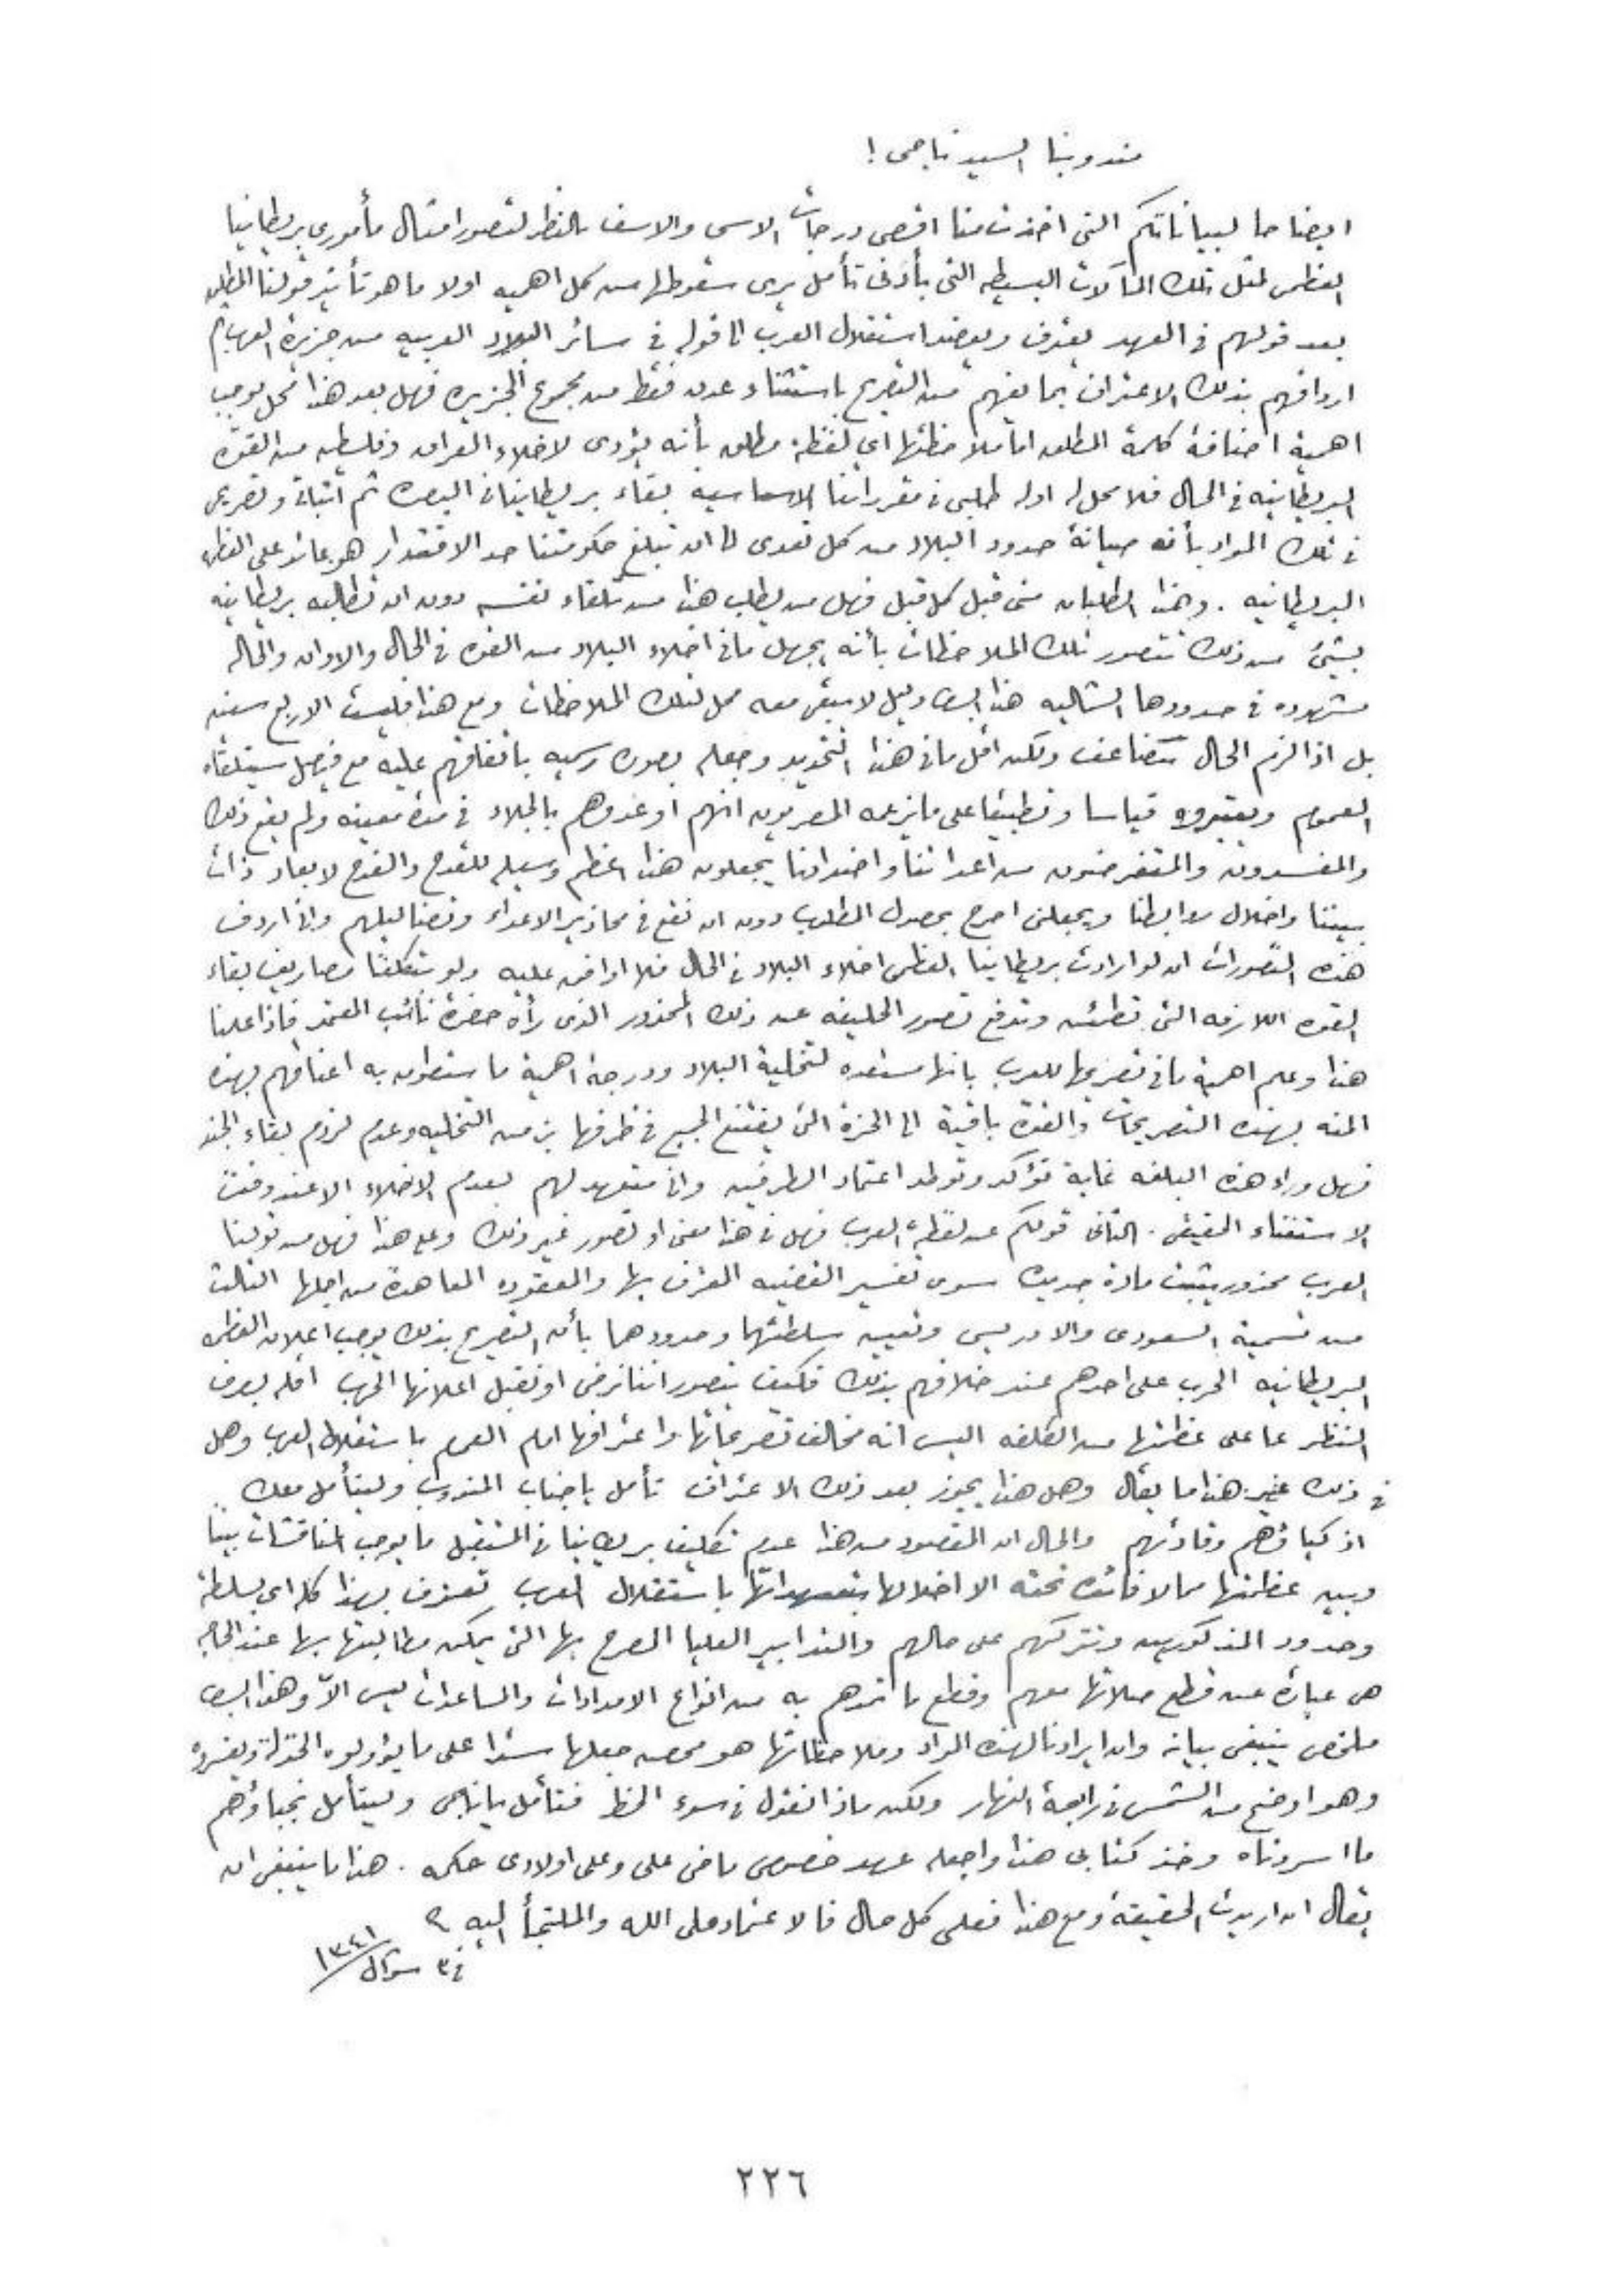 مندوبنا السيد ناجى !
ايضاحا لبياناتكم التى اخذت منا اقصى درجات الاسى والاسف بالنظر لتصور امثال مأمورى بريطانيا
العظمى لمثل تلك المآلات البسيطه التى بأدنى تأمل يرى سقوطها من كل اهميه اولا ما هو تأثير قولنا المطلق
بعد قولهم فى العهد يعترف ويعضد استقلال العرب الى قوله فى سائر البلاد العربيه من جزيرة العرب ثم
اردافهم بذلك الاعتراف بما يفهم من التصريح باستثناء عدن فقط من مجموع الجزيره فهل بعد هذا محل يوجب
اهمية اضافة كلمة المطلق اما ملاحظتها اي لفظة مطلق بأنه يؤدى لاخلاء العراق وفلسطين من القوة
البريطانيه فى الحال فلا محل له اوله طلبى فى مقرراتنا الاساسيه بقاء بريطانيا فى البصره ثم اثباته وتصريحى
فى تلك المواد بأنه صيانة حدود البلاد من كل تعدى الى ان تبلغ حكومتنا حد الاقتدار هو عائد على العظمه
البريطانيه . وهذا الطلبان منى قبل كل قبل فهل من يطلب هذا من تلقاء نفسه دون ان تطالبه بريطانيه
بشئ من ذلك تتصور تلك الملاحظات بأنه يجهل ما فى اخلاء البلاد من القوه فى الحال والاوان والحاله
مشهوده فى حدودها الشماليه هذا ايضا دليل لا يبقى معه محل لتلك الملاحظات ومع هذا فليست الاربع سنين
بل اذا لزم الحال تتضاعف ولكن اقل ما فى هذا التحديد وجعله بصوره رسميه باتفاقهم عليه مع فيصل سيتلقاه
العموم ويعتبروه قياسا وتطبيقا على ما يزعمه المصريون انهم اوعدوهم بالجلاء فى مدة معينه ولم يقع ذلك
والمفسدون والمتغرضون من اعدائنا واضدادنا يجعلون هذا اعظم وسيله للقدح والقدح لابعاد ذات
بيننا واخلال روابطنا ويجعلنى اصرح بحصول المطلوب دون ان نقع فى محاذير الاعداء وتضاليلهم وانى اردف
هذه التصورات ان لو ارادت بريطانيا العظمى اخلاء البلاد فى الحال فلا اوافق عليه ولو بتكلفنا مصاريف بقاء
القوه اللازمه التى تطمئن وتدفع تصور الحليفه عن ذلك المحذور الذى رآه حضرة نائب المعتمد فاذا علمنا
هذا وعلم اهمية ما فى تصريحها للعرب بانها مستعده لتخلية البلاد ودرجة اهمية ما ستطوق به اعناقهم بهذه
المنه بهذه التصريحات والقوة باقية الى الحزة التى يقتنع الجميع فى ظرفها بزمن التخليه وعدم لزوم بقاء الجند
فهل وراء هذه البلغه غاية تؤكد وتوطد اعتماد الطرفين وانى متعهد لهم بعدم الاخلاء الا عند وقت
الاستغناء الحقيقى . الثانى قولكم عن لفظة العرب فهل فى هذا معنى او تصور غير ذلك وعلى هذا فهل من قولنا
العرب محذور يثبت مادة جديدة سوى تفسير القضيه المعترف بها والمعقوده المعاهدة من اجلها الثالث
من تسمية السعودى والادريسى وتعيين سلطتهما وحدودهما بأن التصريح بذلك يوجب اعلان العظمه
البريطانيه الحرب على احدهم عند خلافهم بذلك فكيف يتصور اننا نرضى او نقبل اعلانها الحرب اقله بصرف
النظر عما على عظمتها من الكلفه اليس انه مخالف تصريحاتها واعترافها امام العموم باستقلال العرب وهل
فى ذلك غير هذا ما يقال وهل هذا يجوز بعد ذلك الاعتراف تأمل يا جناب المندوب وليتأمل معك
اذكياؤهم وقادتهم والحال ان المقصود من هذا عدم تكليف بريطانيا فى المستقبل ما يوجب المناقشات بيننا
وبين عظمتها مما لا فائده تحته الا اخلالها بتعهداتها باستقلال العرب تعترف بهذا كله اى بسلطة
وحدود المذكورين ونتركهم على حالهم والتدابير العليا المصرح بها التى يمكن مطالبتها بها عند الحاجه
هى عبارة عن قطع صلاتها معهم وقطع ما تمدهم به من انواع الامدادات والمساعدات ليس الاّ وهذا ايضا
ملخص ينبغى بيانه وان ايرادنا لهذه المواد وملاحظاتها هو محض جعلها سدا على ما يؤولوه الخذلة ويفسروه
وهو اوضح من الشمس فى رابعة النهار ولكن ماذا نقول فى سوء الحظ فتأمل يا ناجى وليتأمل نجباؤهم
ما اسردناه وخذ كتابى هذا واجعله عهد خصوصى ماضى على وعلى اولادى حكمه . هذا ما ينبغى ان
يقال ان اريدت الحقيقة ومع هذا فعلى كل حال فالاعتماد على الله والملتجأ اليه
فى ٣ شوال ١٣٤١
٢٢٦